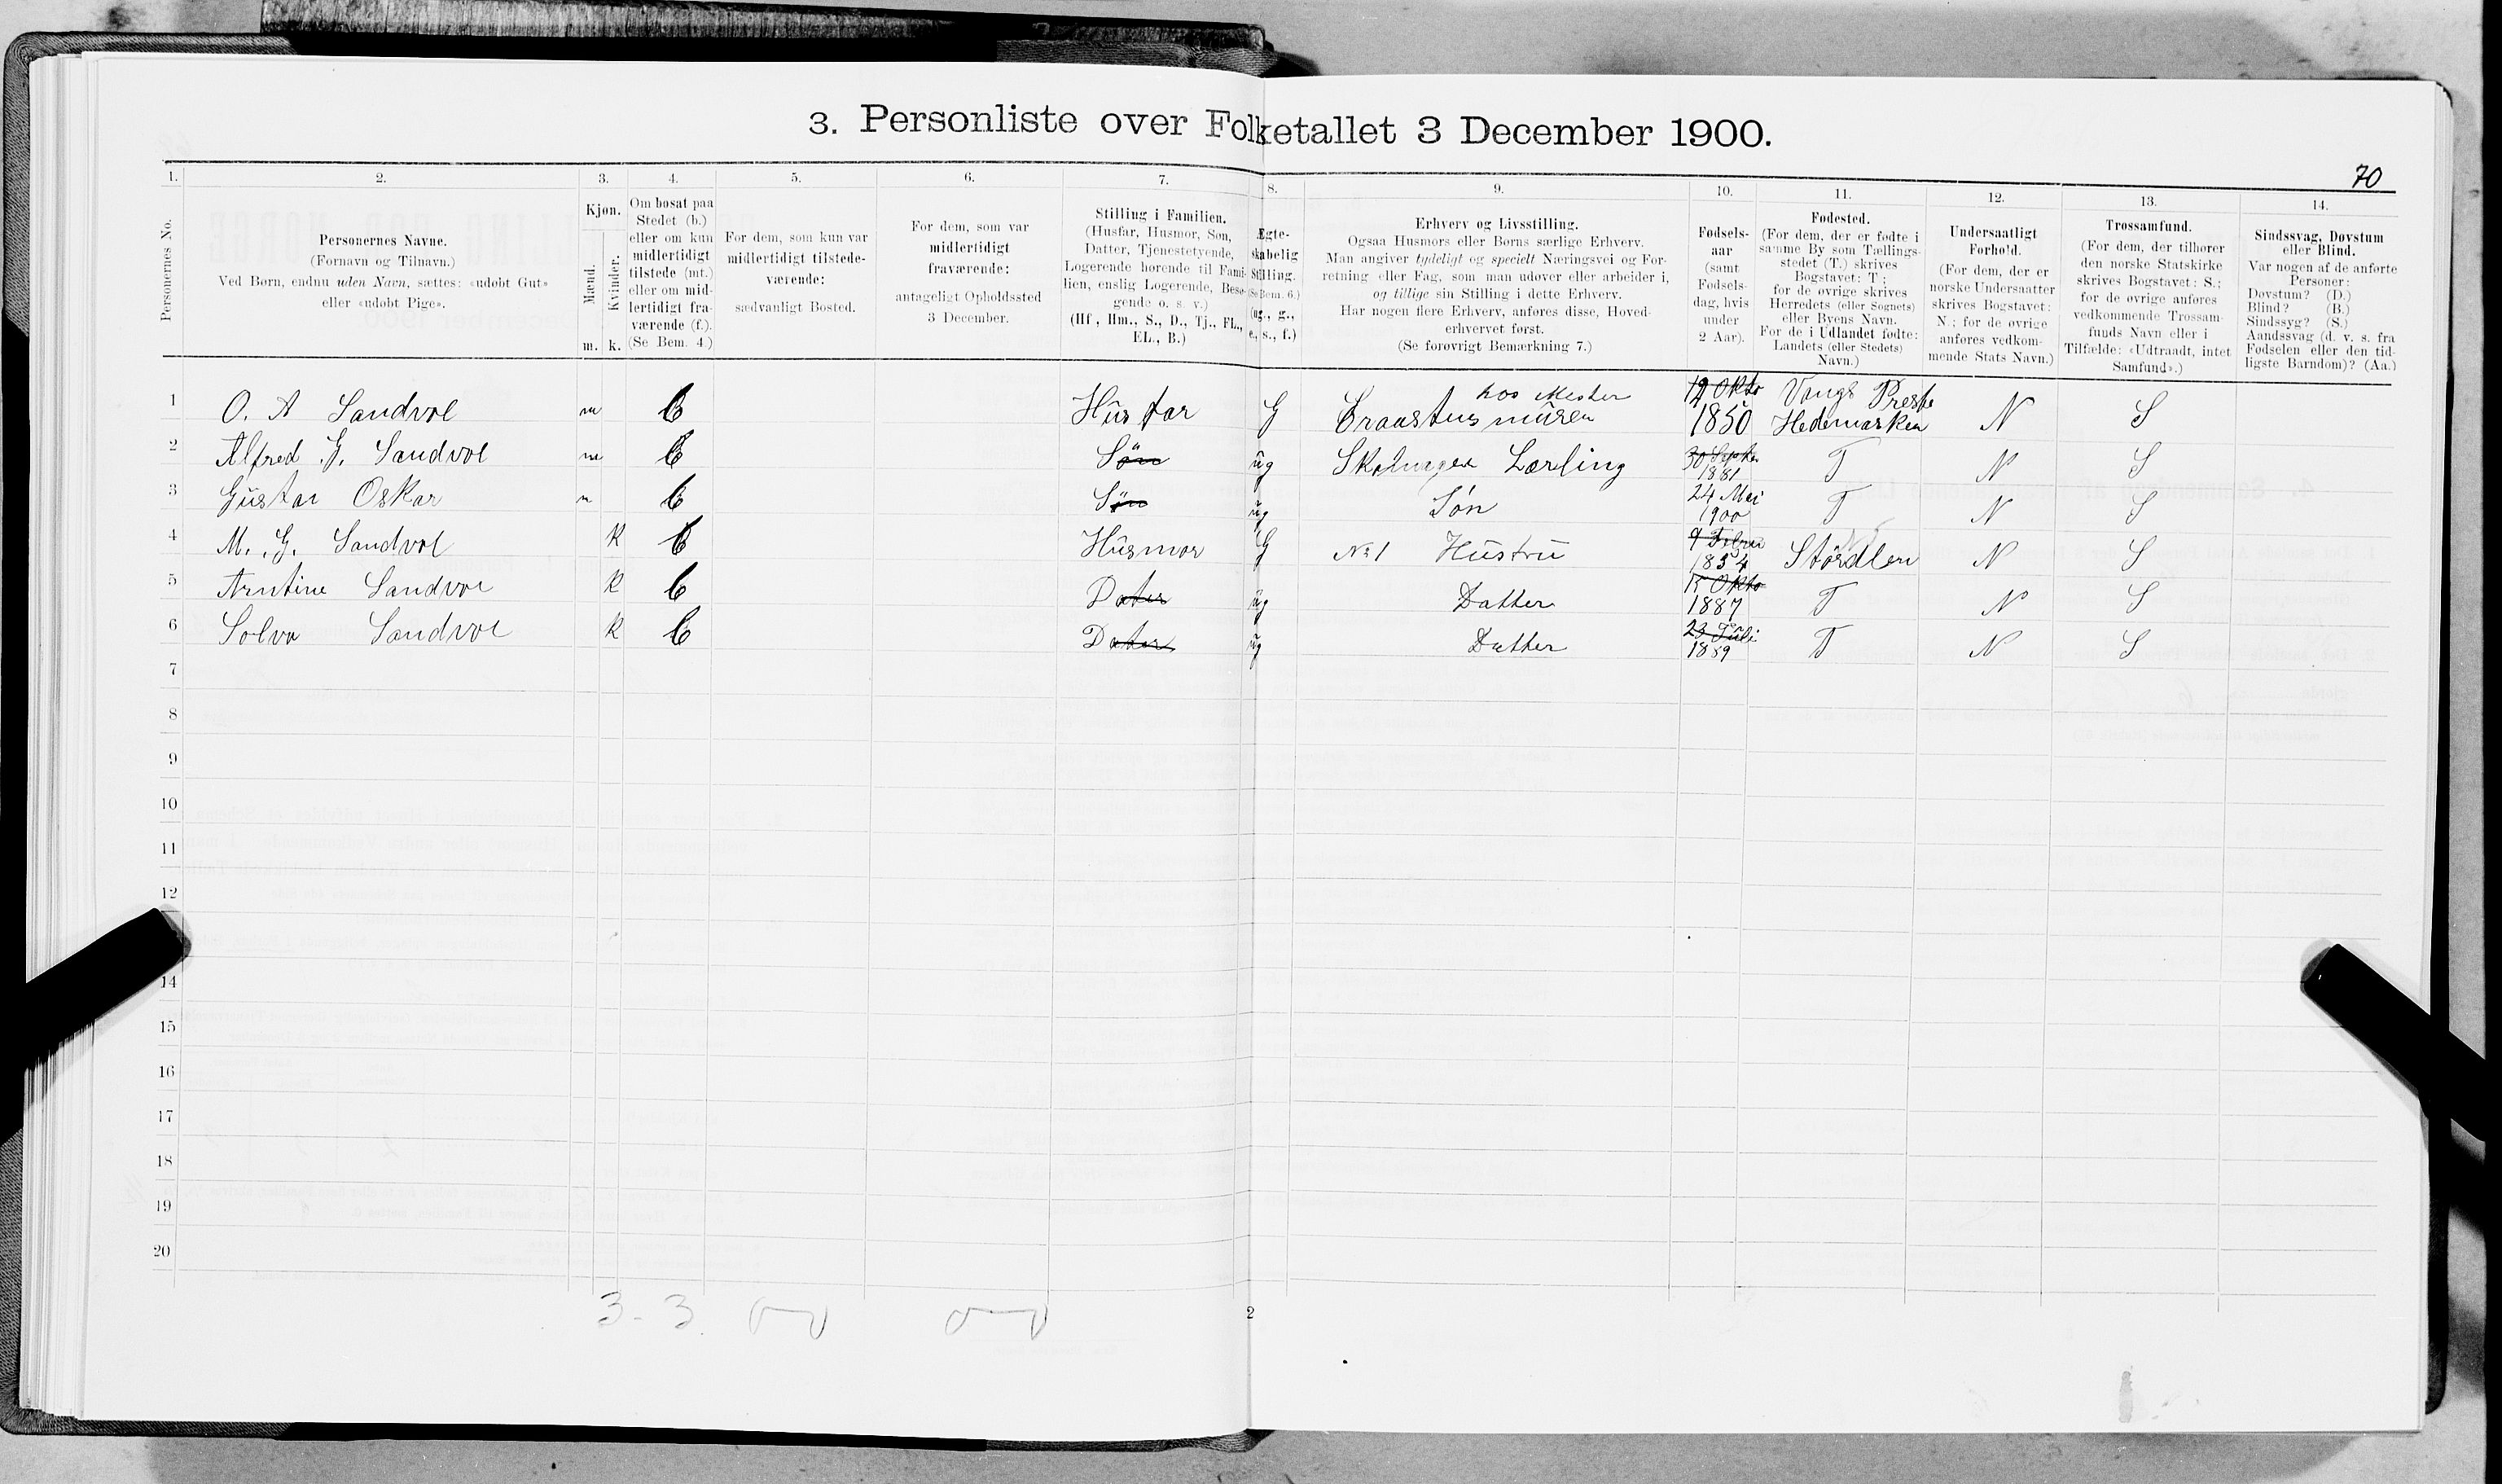 3. Personliste over Folketallet 3 December 1900.
70
1. 2. 3. 4. 5. 6. 7. 8. 9. 10. 11. 12. 13. 14.
Personernes No.
Personernes Navne.
(Fornavn og Tilnavn.)
Ved Børn, endnu uden Navn, sættes: «udøbt Gut»
eller «udøbt Pige».
Kjøn.
Mænd.
Kvinder.
m. k.
Om bosat paa
Stedet (b.)
eller om kun
midlertidigt
tilstede (mt.)
eller om mid-
lertidigt fra-
værende (f.).
(Se Bem. 4.)
For dem, som kun var
midlertidigt tilstede-
værende:
sædvanligt Bosted.
For dem, som var
midlertidigt
fraværende:
antageligt Opholdssted
3 December.
Stilling i Familien.
(Husfar, Husmor, Søn,
Datter, Tjenestetyende,
Logerende hørende til Fami-
lien, enslig Logerende, Besø-
gende o. s. v.)
(Hf., Hm., S., D., Tj., FL.,
EL., B.)
Ægte-
skabelig
Stilling.
(Se Bem. 6.)
(ug., g.,
e., s., f.)
Erhverv og Livsstilling.
Ogsaa Husmors eller Børns særlige Erhverv.
Man angiver tydeligt og specielt Næringsvei og For-
retning eller Fag, som man udøver eller arbeider i,
og tillige sin Stilling i dette Erhverv.
Har nogen flere Erhverv, anføres disse, Hoved-
erhvervet først.
(Se forøvrigt Bemærkning 7.)
Fødsels-
aar
(samt
Fødsels-
dag, hvis
under
2 Aar).
Fødested.
(For dem, der er fødte i
samme By som Tællings-
stedet (T.) skrives
Bogstavet: T;
for de øvrige skrives
Herredets (eller Sognets)
eller Byens Navn.
For de i Udlandet fødte:
Landets (eller Stedets)
Navn.)
Undersaatligt
Forhold.
(For dem, der er
norske Undersaatter
skrives Bogstavet:
N.; for de øvrige
anføres vedkom-
mende Stats Navn.)
Trossamfund.
(For dem, der tilhører
den norske Statskirke
skrives Bogstavet: S.;
for de øvrige anføres
vedkommende Trossam-
funds Navn eller i
Tilfælde: «Udtraadt, intet
Samfund».)
Sindssvag, Døvstum
eller Blind.
Var nogen af de anførte
Personer:
Døvstum? (D.)
Blind? (B.)
Sindssyg? (S.)
Aandssvag (d. v. s. fra
Fødselen eller den tid-
ligste Barndom)? (Aa.)
hos Mester 12 Okto Vangs Preste
1 O. A Sandvol m b Hüs far G 1850 Hedemarken N S
2 Alfred G. Sandvol m b Sön üg Skomager Lærling 30 Septer 1881 T N S
3 Güstav Oskar m b Sön üg Søn 24 Mai 1900 T N S
4 M. G. Sandvol k b Hüsmor G No 1 Hüstrü 9 Febru 1854 Stördlen N S
5 Arntine Sandvol k b Dater üg Datter 15 Okto 1887 T N S
6 Solva Sandvol k b Dater üg Datter 23 Jüli 1889 T N S
7
8
9
10
11
12
14
15
16
17
18
19
20
3 - 3.
2